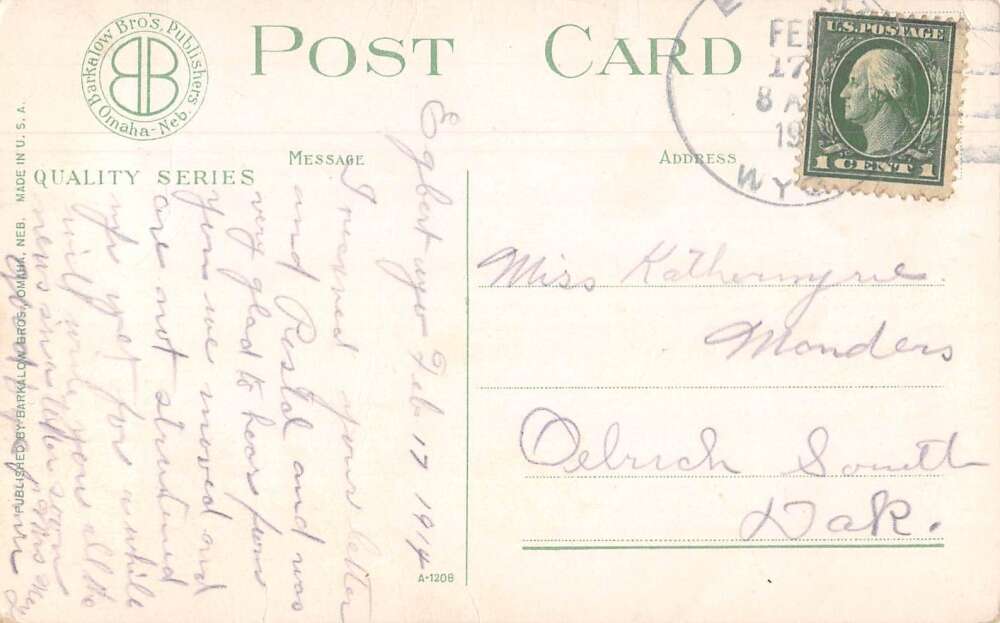 Barkalow Bro's. Publishers.
Omaha-Neb.
POST CARD
MESSAGE
ADDRESS
QUALITY SERIES
U.S. POSTAGE
1 CENT 1
FEB
17
8 A
19
WYO
Egbert wyo Feb 17 1914
I received your letter
and Postal and was
very glad to hear from
you we moved and
are not straitened
up yet for awhile
will write you all the
news in a letter soon
Miss Katherynne
Monders
Oelrich South
Dak.
A-1208
PUBLISHED BY BARKALOW BROS., OMAHA, NEB. MADE IN U. S. A.